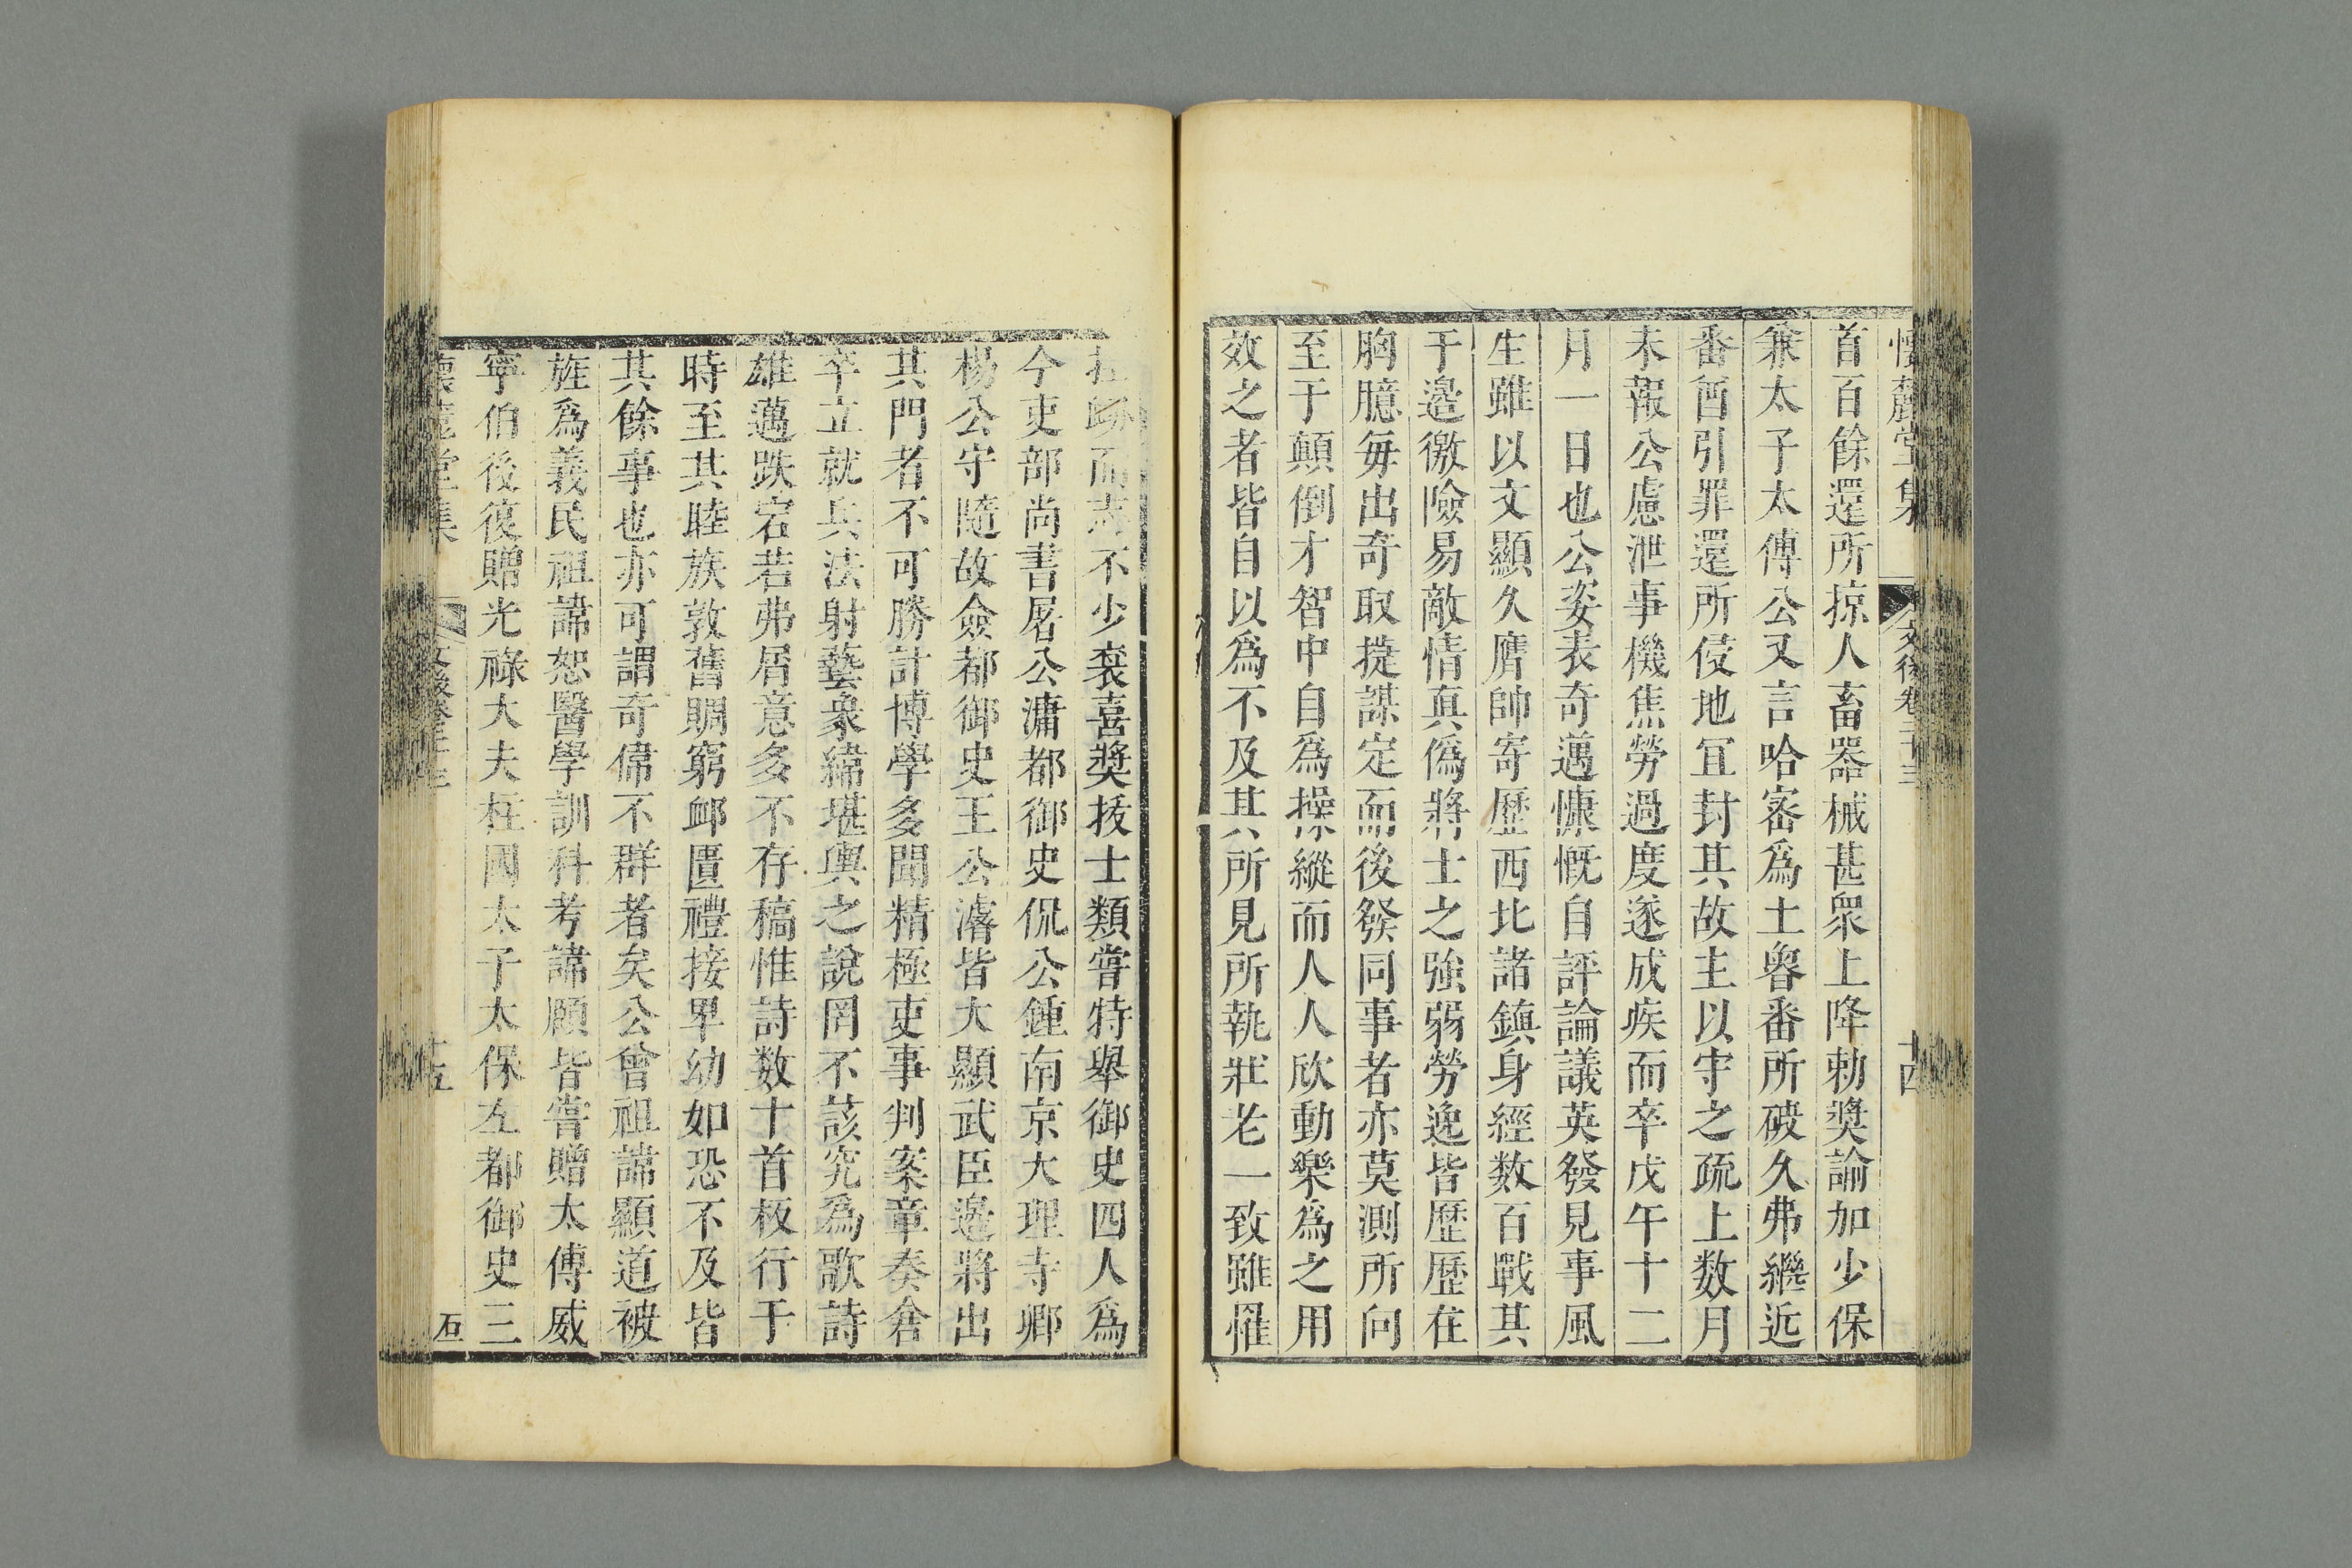 懷麓堂集 文後卷二十三 十四
首百餘還所掠人畜器械甚眾上降勅獎諭加少保
兼太子太傅公又言哈宻爲土魯番所破久弗繼近
番酋引罪還所侵地冝封其故主以守之疏上数月
未報公慮泄事機焦勞過度遂成疾而卒戊午十二
月一日也公姿表奇邁慷慨自評論議英發見事風
生雖以文顯久膺帥寄歷西北諸鎮身經数百戰其
于邉徼險易敵情真僞將士之強弱勞逸皆歷歷在
胸臆毎出奇取㨗謀定而後發同事者亦莫測所向
至于顛倒才智中自爲操縱而人人欣動樂爲之用
效之者皆自以爲不及其所見所執壯老一致雖罹
而志不少衰喜獎拔士類嘗特舉御史四人爲
今吏部尚書屠公滽都御史侃公鍾南京大理寺卿
楊公守隨故僉都御史王公濬皆大顯武臣邉將出
其門者不可勝計博學多聞精極吏事判案章奏倉
卒立就兵法射藝象緯堪輿之說罔不該究爲歌詩
雄邁跌宕若弗屑意多不存稿惟詩数十首板行于
時至其睦族敦舊賙窮卹匱禮接卑幼如恐不及皆
其餘事也亦可謂奇偉不群者矣公曾祖諱顯道被
旌爲義民祖諱恕醫學訓科考諱願皆嘗贈太傅威
寧伯後復贈光祿大夫柱國太子太保左都御史三
懷麓堂集 文後卷二十三 十五 石